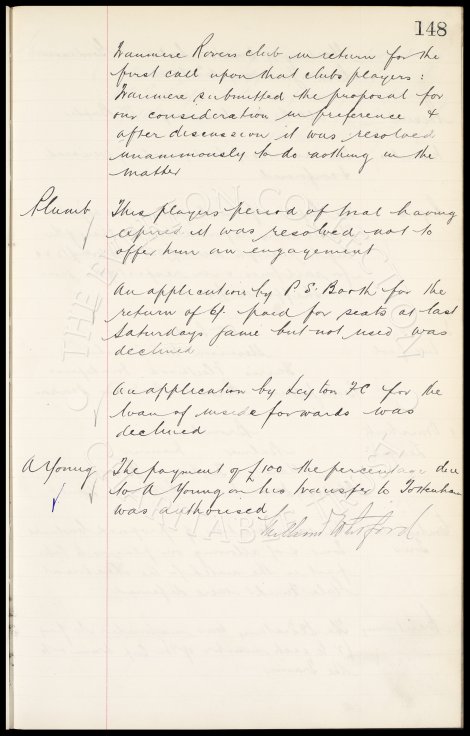 148
Tranmere Rovers club in return for the
first call upon that clubs players:
Tranmere submitted the proposal for
our consideration in preference &
after discussion it was resolved
unanimously to do nothing in the
matter
Plumb This players period of trial having
expired it was resolved not to
offer him an engagement
An application by P. S. Booth for the
return of 6/- paid for seats at last
Saturdays game but not used was
declined
An application by Leyton FC for the
loan of inside forwards was
declined
A Young The payment of £100 the percentage due
to A Young on his transfer to Tottenham
was authorised